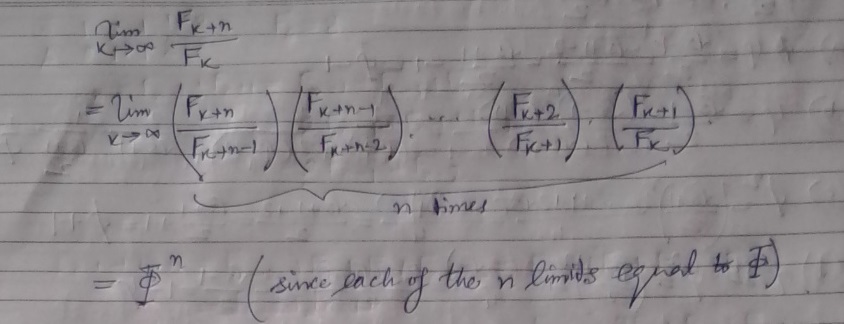 lim_{K→∞} F_{K+n} / F_K
= lim_{K→∞} (F_{K+n} / F_{K+n-1}) (F_{K+n-1} / F_{K+n-2}) . ... (F_{K+2} / F_{K+1}) . (F_{K+1} / F_K) .
n times
= Φ^n (since each of the n limits equal to Φ)